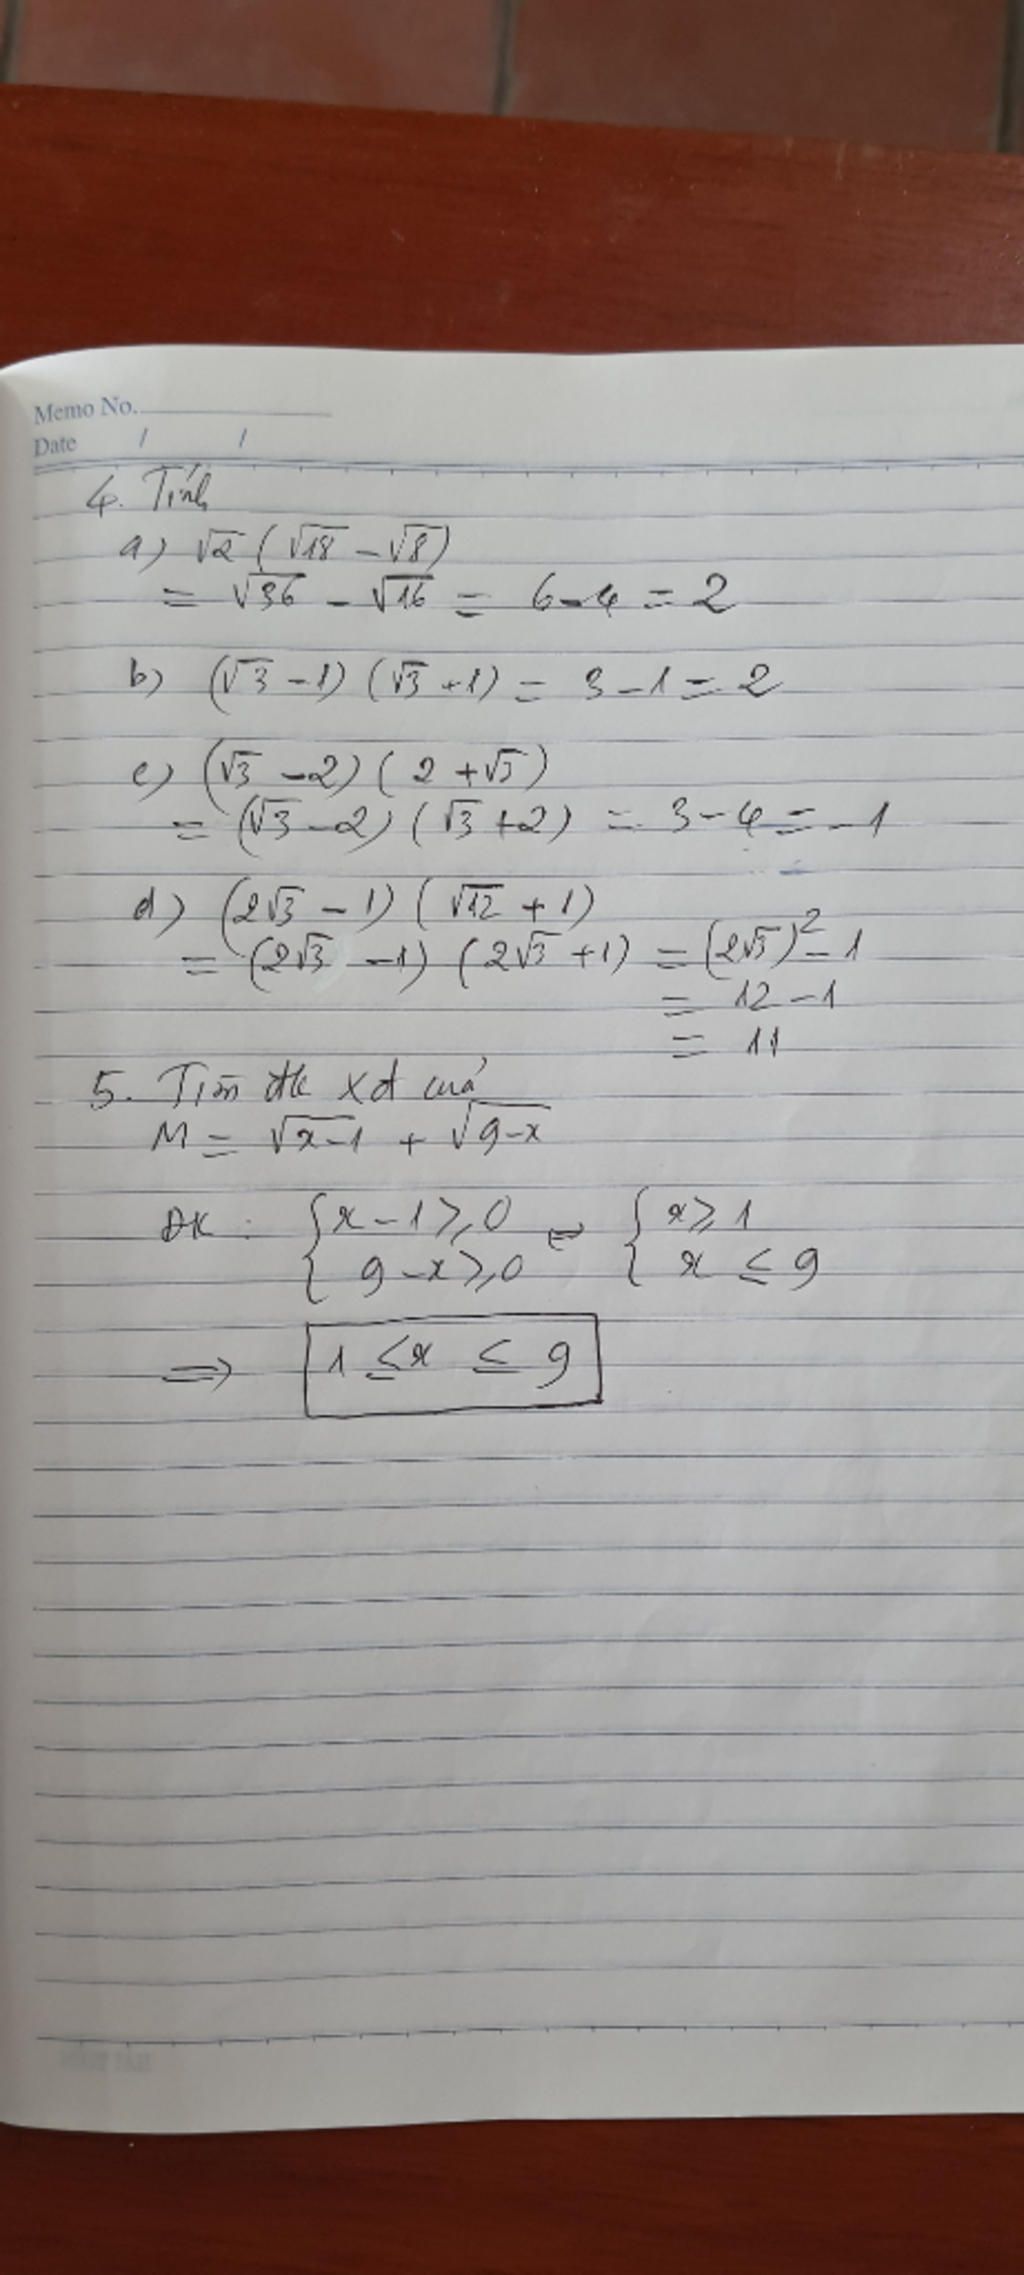 Memo No.
Date / /
4. Tính
a) √2 (√18 - √8)
= √36 - √16 = 6 - 4 = 2
b) (√3 - 1) (√3 + 1) = 3 - 1 = 2
c) (√3 - 2) ( 2 + √3)
= (√3 - 2) ( √3 + 2) = 3 - 4 = -1
d) (2√3 - 1) ( √12 + 1)
= (2√3 - 1) (2√3 + 1) = (2√3)² - 1
= 12 - 1
= 11
5. Tìm đk xđ của
M = √x-1 + √9-x
ĐK : { x - 1 ≥ 0 ⇔ { x ≥ 1
9 - x ≥ 0 x ≤ 9
⇒ 1 ≤ x ≤ 9